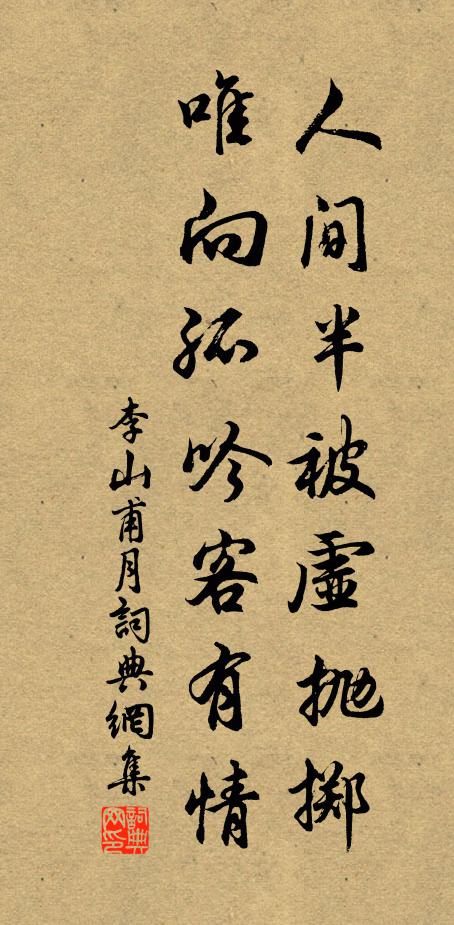 人间半被虚抛掷
唯向孤吟客有情
李山甫月詞典網集
詞典网印